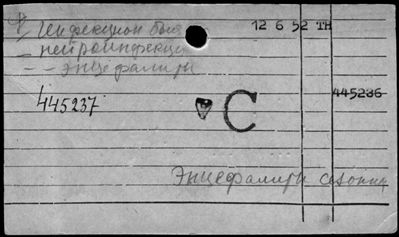 Инфекцион бол 12 6 52 ТН
– нейроинфекци
– – энцефалиты
445237 C 445236
Энцефалиты сезонн